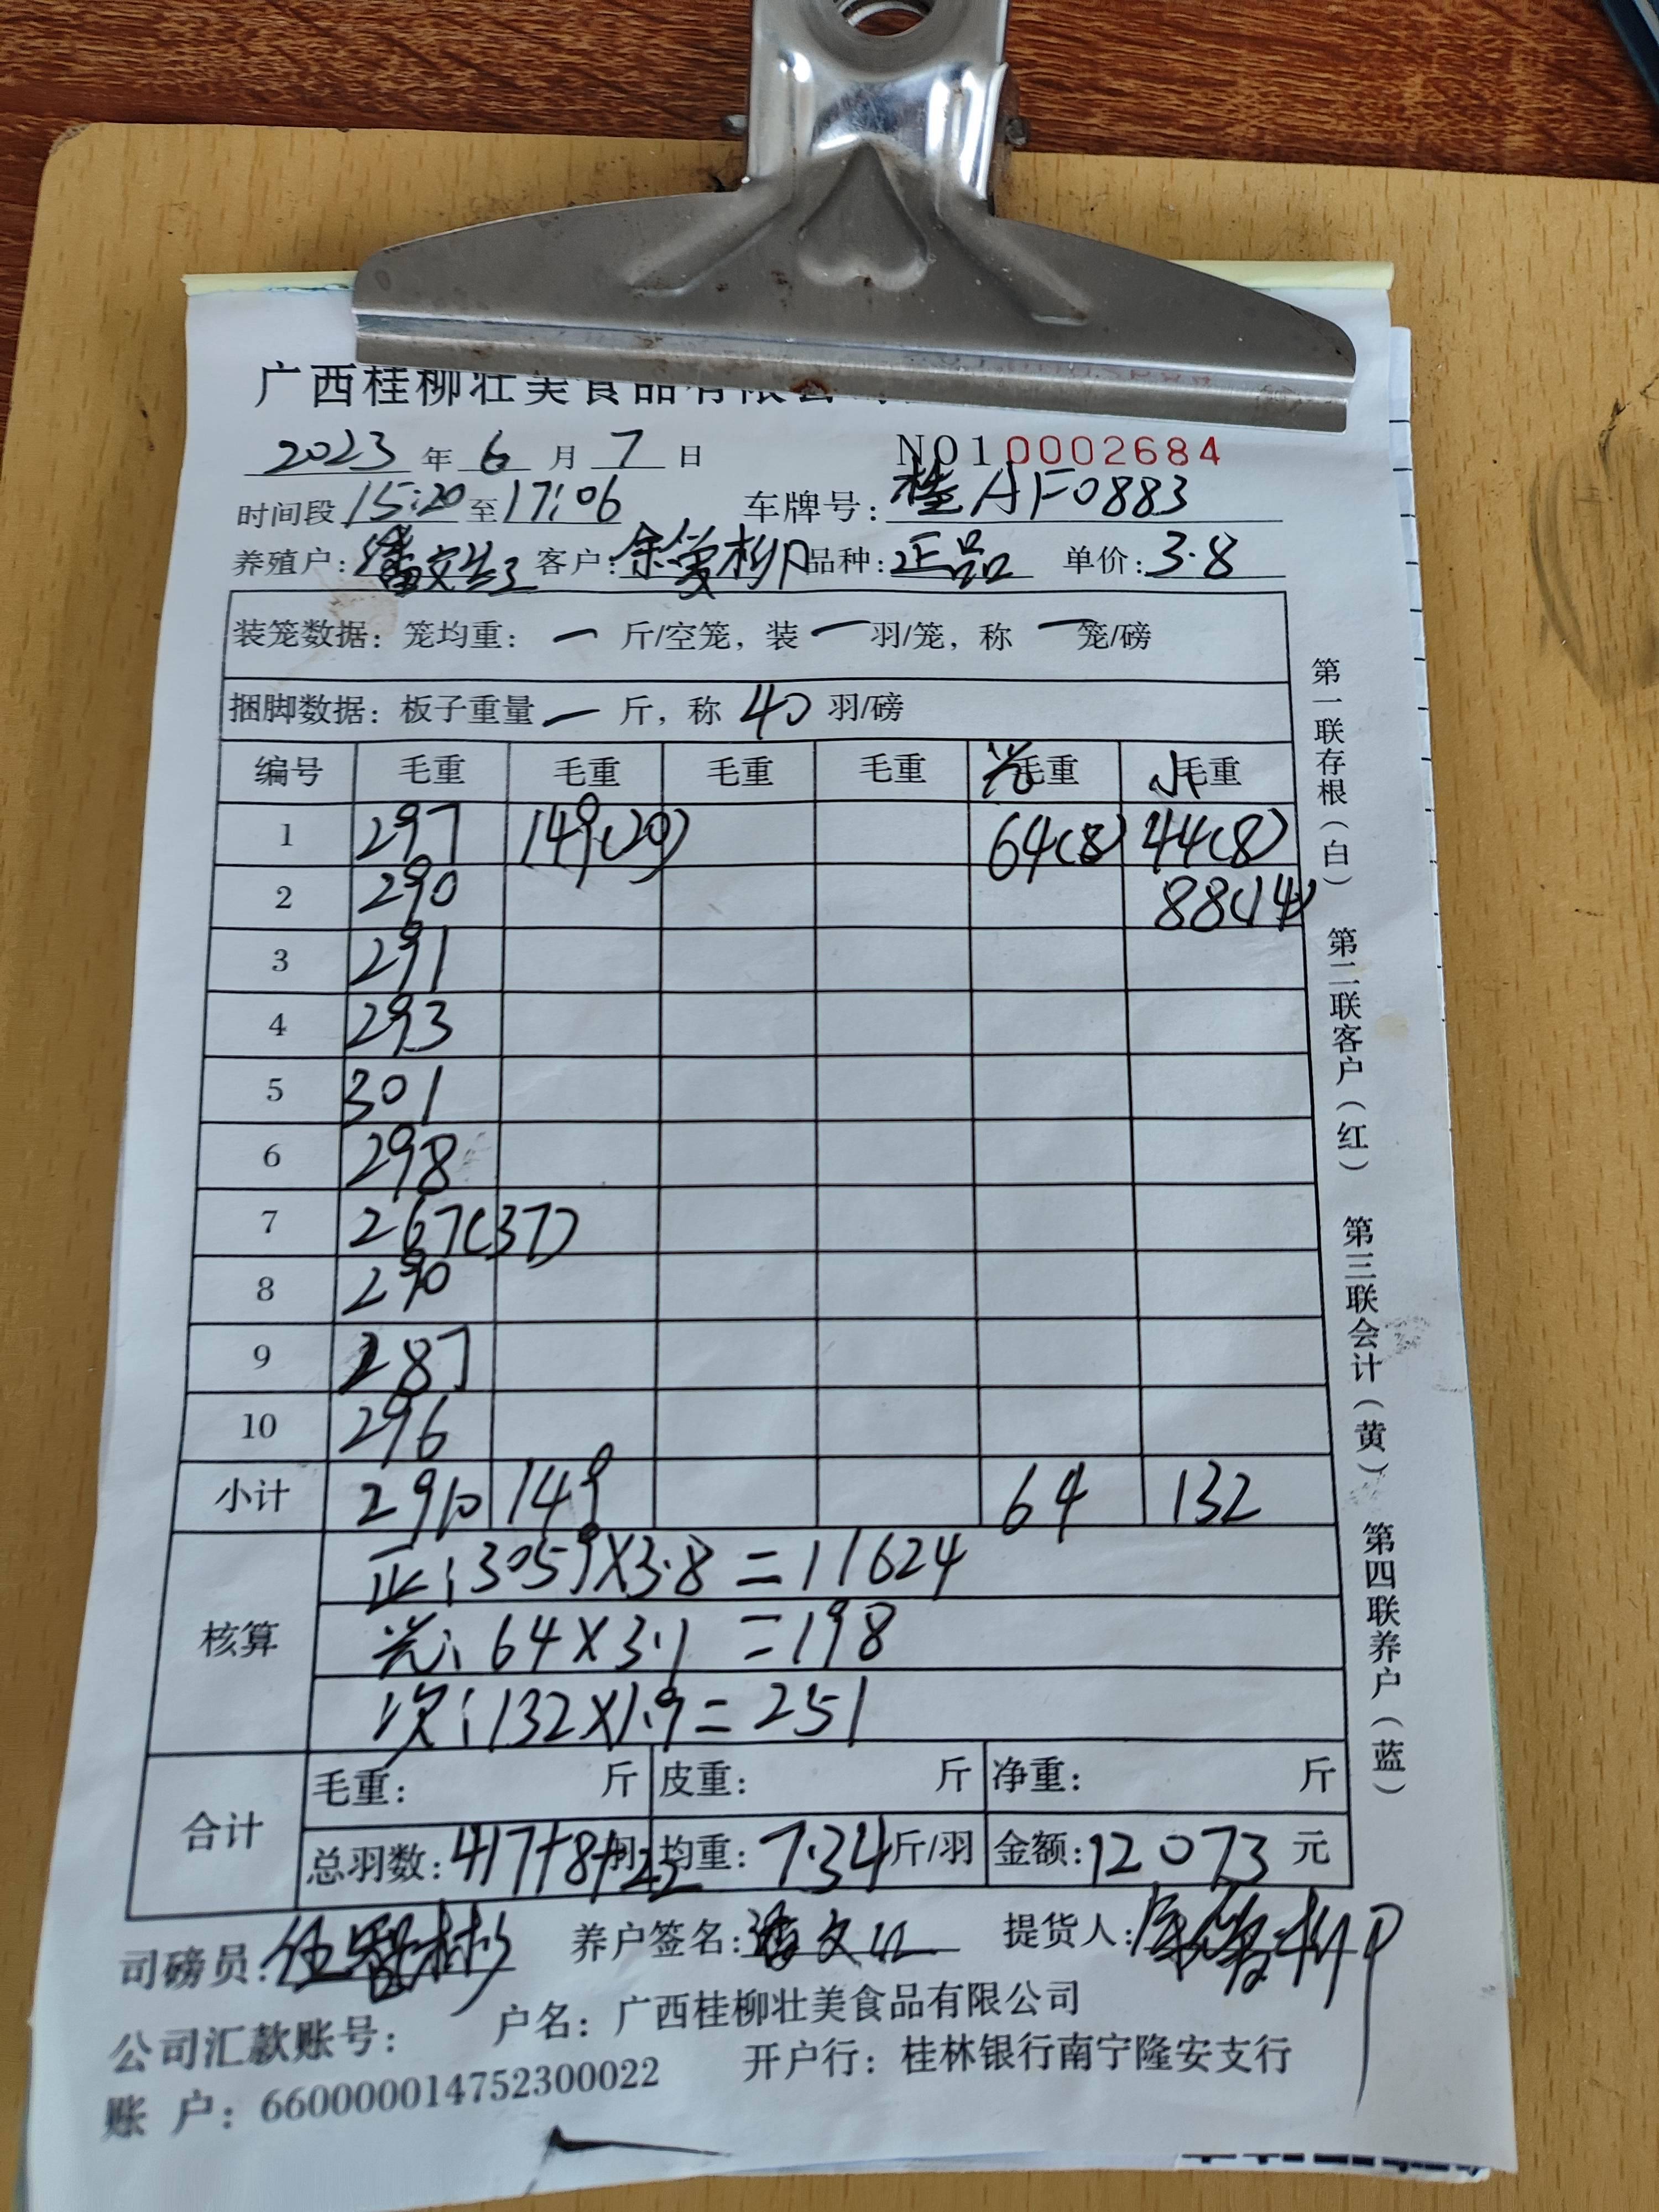 广西桂柳壮美食品有限公
2023 年 6 月 7 日 NO10002684
时间段 15:20 至 17:06 车牌号: 桂AF0883
养殖户: 潘文 客户: 余 柳 品种: 正品 单价: 3.8
装笼数据: 笼均重: 一 斤/空笼, 装 一 羽/笼, 称 一 笼/磅
捆脚数据: 板子重量 一 斤, 称 40 羽/磅
编号 毛重 毛重 毛重 毛重 光毛重 小毛重
1 297 149(20) 64(8) 44(8)
2 290 88(14)
3 291
4 293
5 301
6 298
7 267(37)
8 290
9 287
10 296
小计 2910 149 64 132
核算 正: 3059×3.8=11624
光: 64×3.1=198
次: 132×1.9=251
合计 毛重: 斤 皮重: 斤 净重: 斤
总羽数: 417+8+22 羽 均重: 7.34 斤/羽 金额: 12073 元
司磅员: 养户签名: 潘文江 提货人:
公司汇款账号: 户名: 广西桂柳壮美食品有限公司
账 户: 660000014752300022 开户行: 桂林银行南宁隆安支行
第一联存根(白) 第二联客户(红) 第三联会计(黄) 第四联养户(蓝)